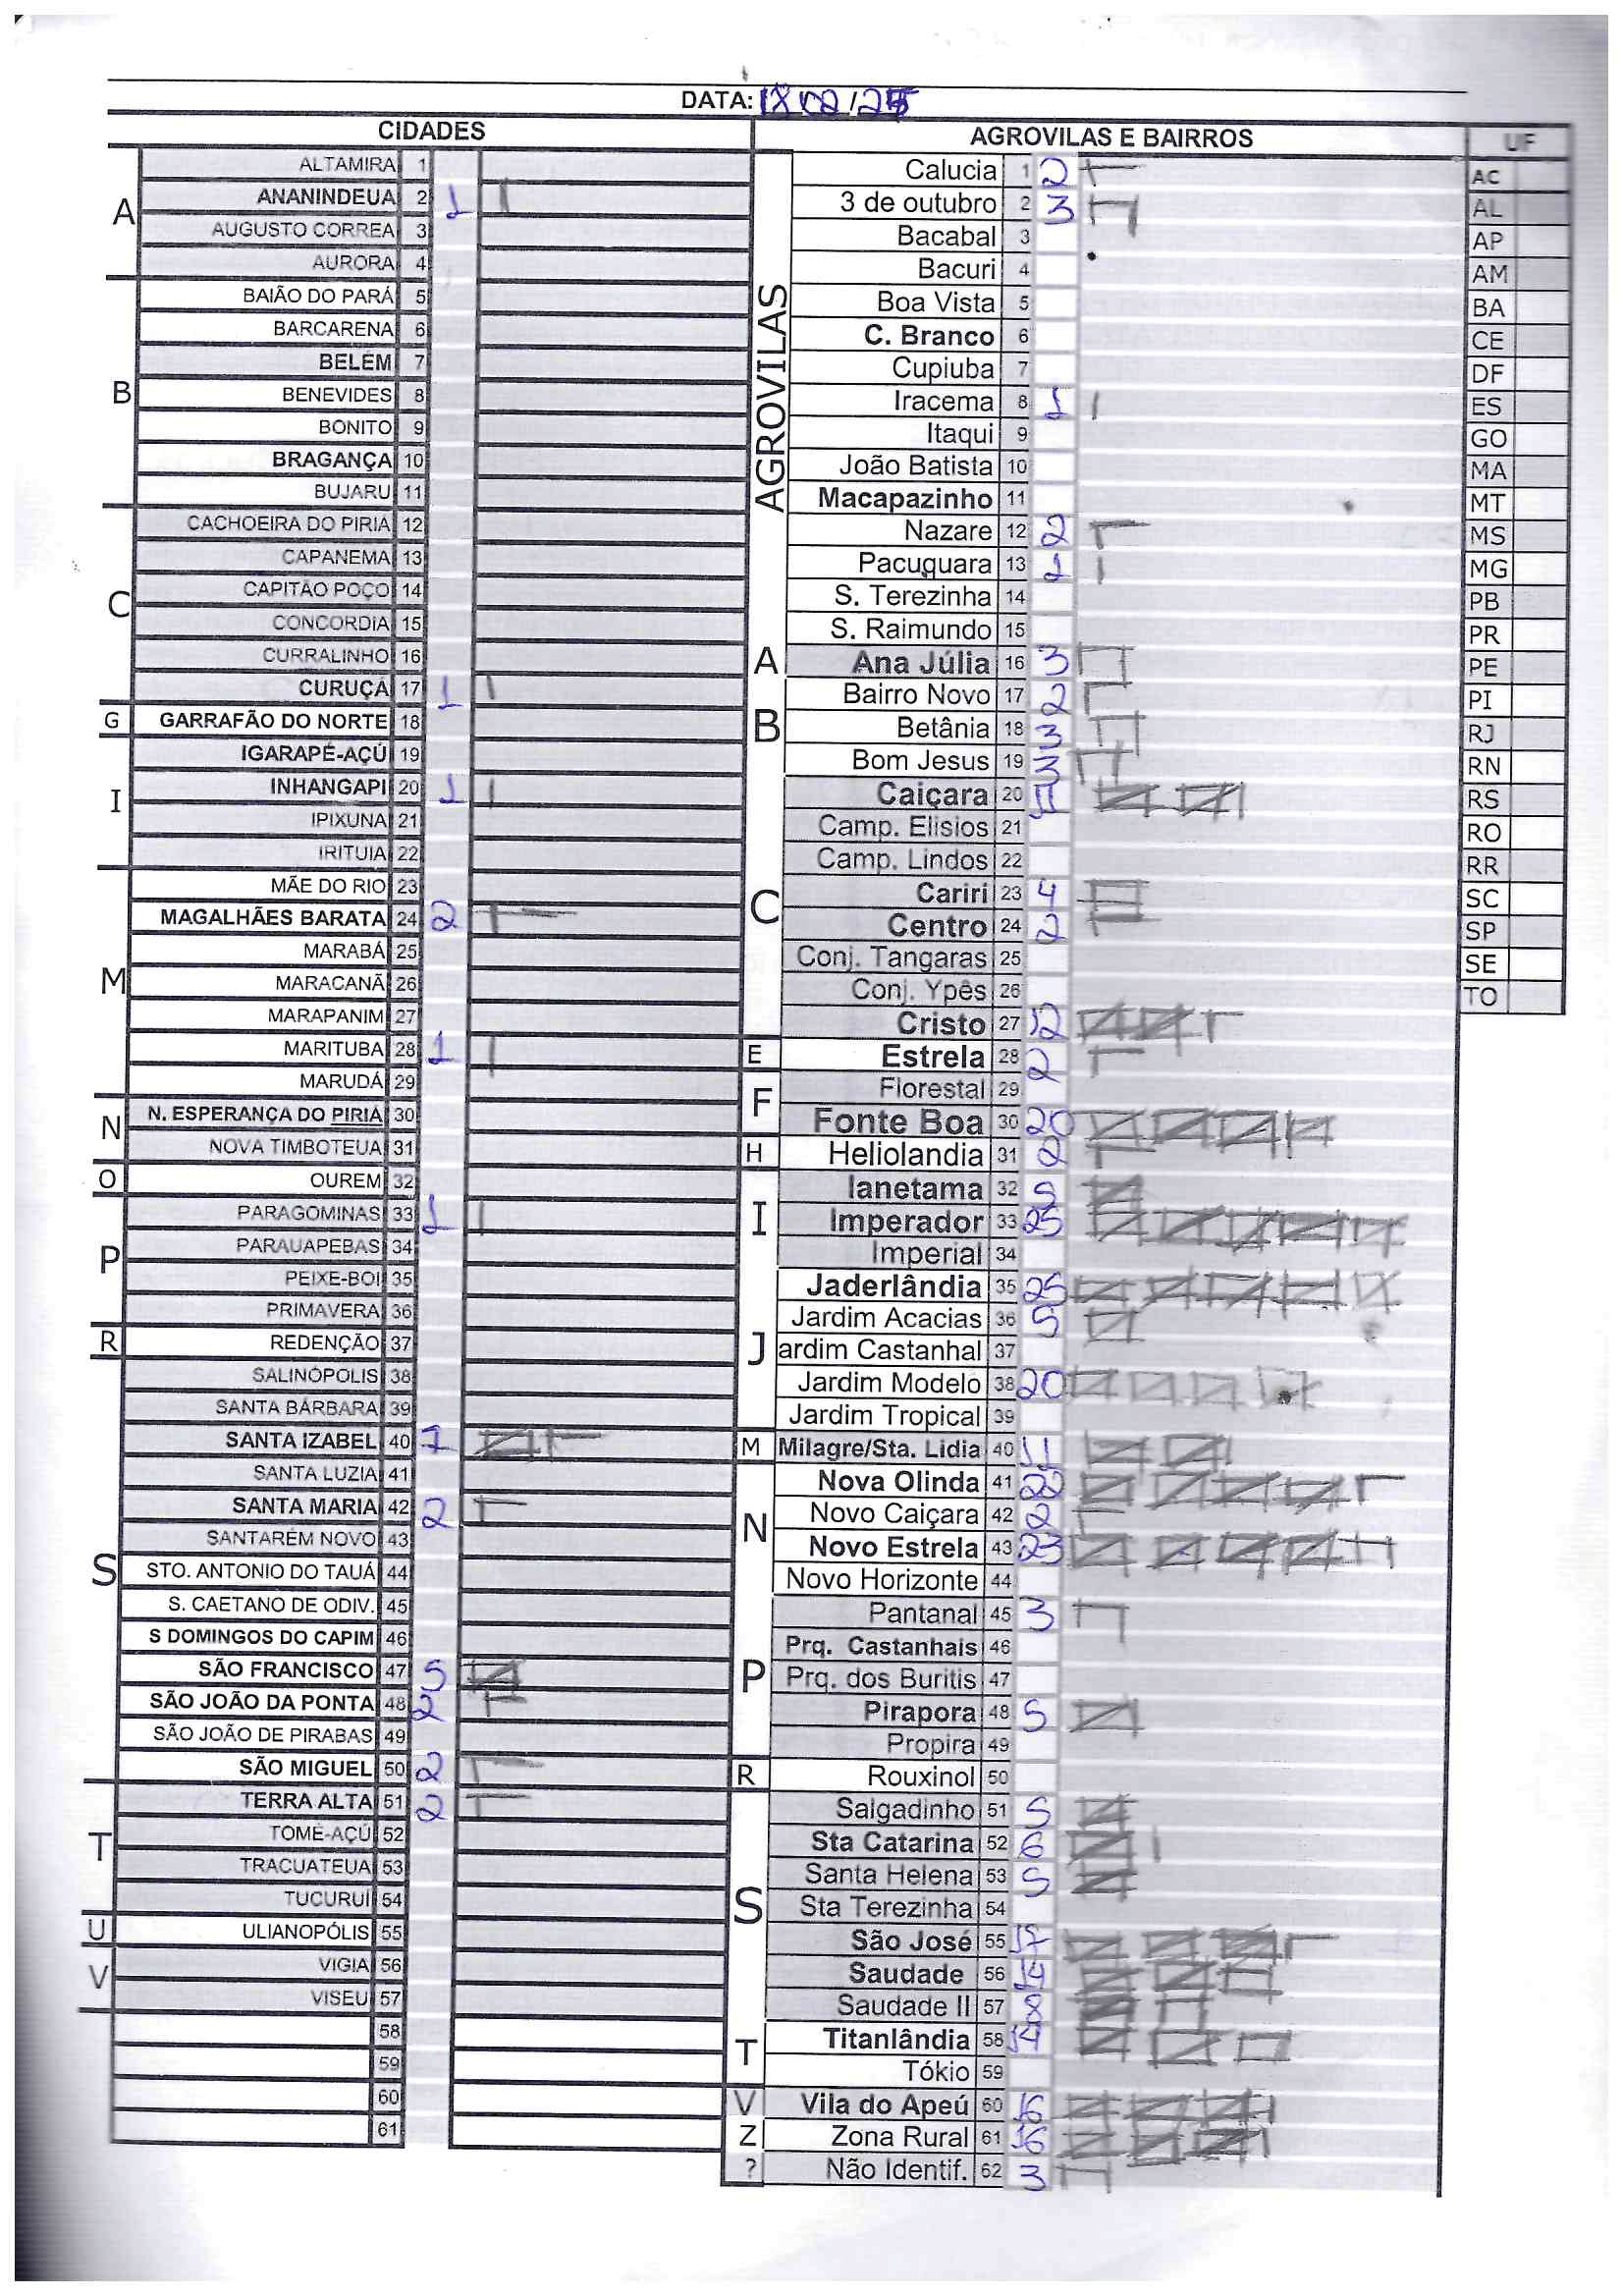 DATA: 18/02/25
CIDADES
A
ALTAMIRA 1
ANANINDEUA 2 1
AUGUSTO CORREA 3
AURORA 4
B
BAIÃO DO PARÁ 5
BARCARENA 6
BELÉM 7
BENEVIDES 8
BONITO 9
BRAGANÇA 10
BUJARU 11
C
CACHOEIRA DO PIRIA 12
CAPANEMA 13
CAPITÃO POÇO 14
CONCORDIA 15
CURRALINHO 16
CURUÇÁ 17 1
G
GARRAFÃO DO NORTE 18
I
IGARAPÉ-AÇÚ 19
INHANGAPI 20 1
IPIXUNA 21
IRITUIA 22
M
MÃE DO RIO 23
MAGALHÃES BARATA 24 2
MARABÁ 25
MARACANÃ 26
MARAPANIM 27
MARITUBA 28 1
MARUDÁ 29
N
N. ESPERANÇA DO PIRIÁ 30
NOVA TIMBOTEUA 31
O
OUREM 32
P
PARAGOMINAS 33 1
PARAUAPEBAS 34
PEIXE-BOI 35
PRIMAVERA 36
R
REDENÇÃO 37
S
SALINÓPOLIS 38
SANTA BÁRBARA 39
SANTA IZABEL 40 7
SANTA LUZIA 41
SANTA MARIA 42 2
SANTARÉM NOVO 43
STO. ANTONIO DO TAUÁ 44
S. CAETANO DE ODIV. 45
S DOMINGOS DO CAPIM 46
SÃO FRANCISCO 47 5
SÃO JOÃO DA PONTA 48 2
SÃO JOÃO DE PIRABAS 49
SÃO MIGUEL 50 2
T
TERRA ALTA 51 2
TOMÉ-AÇÚ 52
TRACUATEUA 53
TUCURUÍ 54
U
ULIANOPÓLIS 55
V
VIGIA 56
VISEU 57
58
59
60
61
AGROVILAS E BAIRROS
AGROVILAS
Calucia 1 2
3 de outubro 2 3
Bacabal 3
Bacuri 4
Boa Vista 5
C. Branco 6
Cupiuba 7
Iracema 8 1
Itaqui 9
João Batista 10
Macapazinho 11
Nazare 12 2
Pacuquara 13 1
S. Terezinha 14
S. Raimundo 15
A
Ana Júlia 16 3
B
Bairro Novo 17 2
Betânia 18 3
Bom Jesus 19 3
C
Caiçara 20 11
Camp. Elisios 21
Camp. Lindos 22
Cariri 23 4
Centro 24 2
Conj. Tangaras 25
Conj. Ypês 26
Cristo 27 12
E
Estrela 28 2
F
Florestal 29
Fonte Boa 30 20
H
Heliolandia 31 2
I
Ianetama 32 5
Imperador 33 25
Imperial 34
J
Jaderlândia 35 25
Jardim Acacias 36 5
ardim Castanhal 37
Jardim Modelo 38 20
Jardim Tropical 39
M
Milagre/Sta. Lidia 40 11
N
Nova Olinda 41 22
Novo Caiçara 42 2
Novo Estrela 43 23
Novo Horizonte 44
P
Pantanal 45 3
Prq. Castanhais 46
Prq. dos Buritis 47
Pirapora 48 5
Propira 49
R
Rouxinol 50
S
Salgadinho 51 5
Sta Catarina 52 6
Santa Helena 53 5
Sta Terezinha 54
São José 55 17
Saudade 56 14
Saudade II 57 8
T
Titanlândia 58 14
Tókio 59
V
Vila do Apeú 60 16
Z
Zona Rural 61 16
?
Não Identif. 62 3
UF
AC
AL
AP
AM
BA
CE
DF
ES
GO
MA
MT
MS
MG
PB
PR
PE
PI
RJ
RN
RS
RO
RR
SC
SP
SE
TO